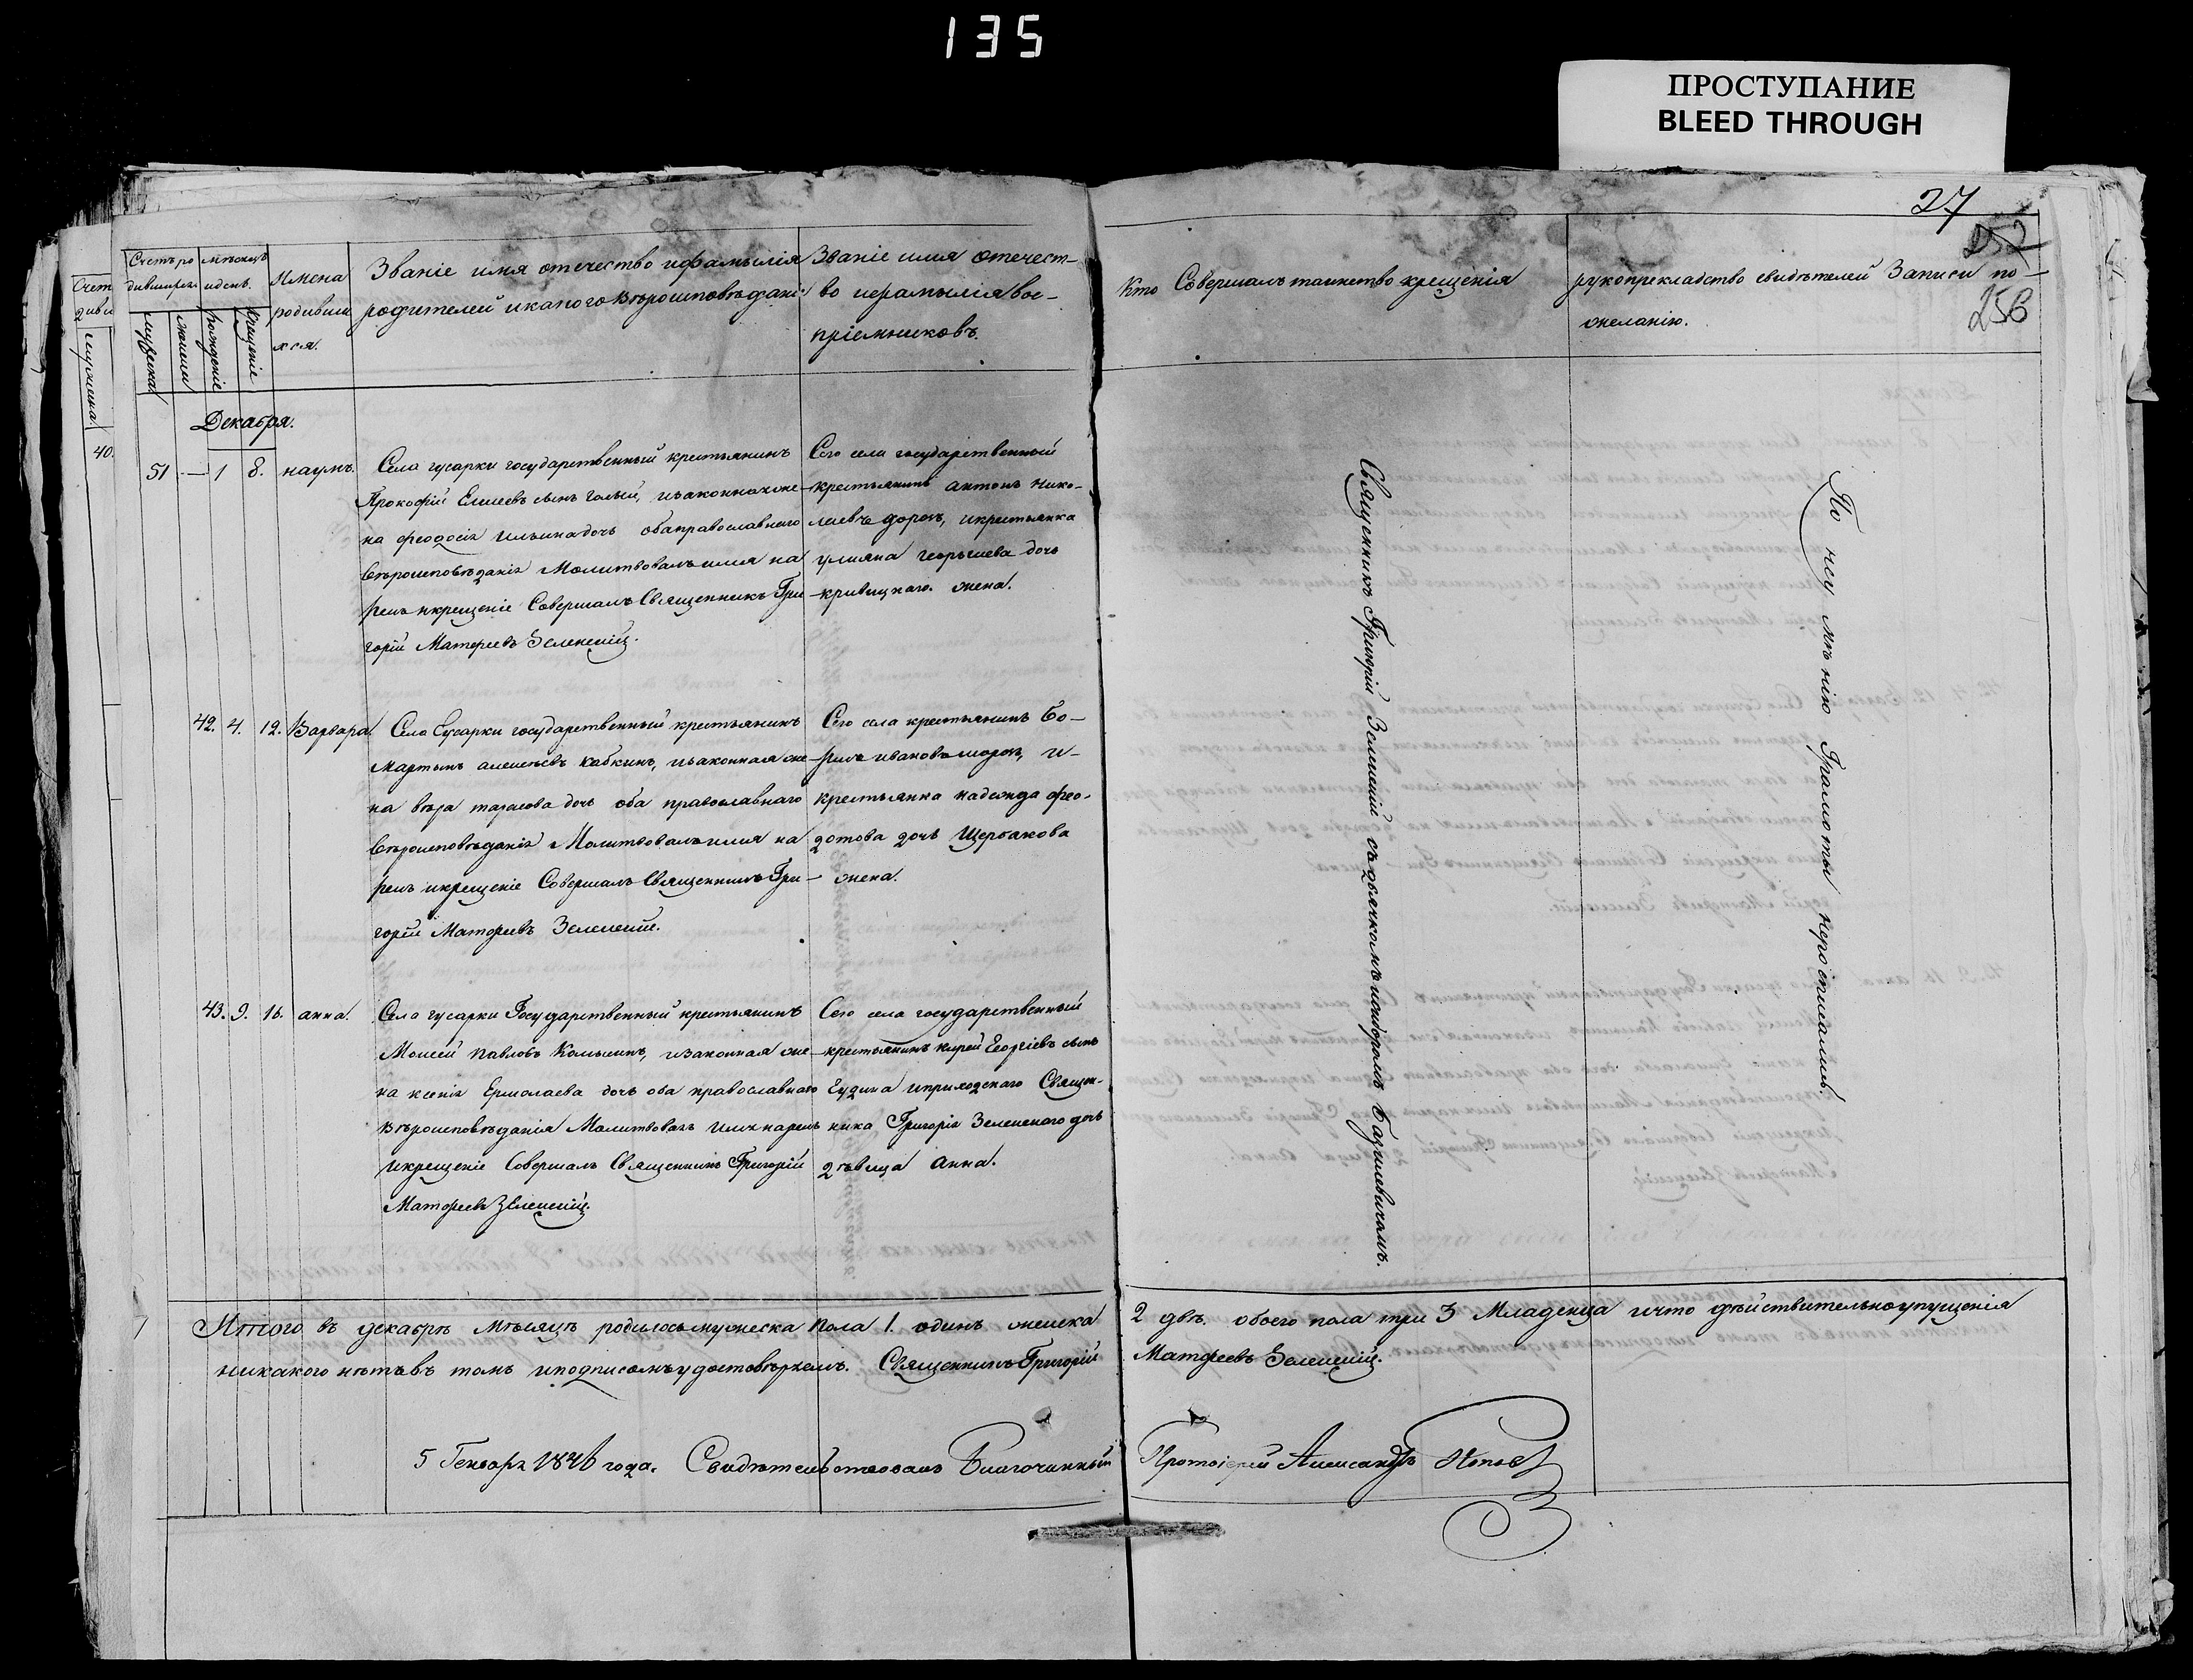 135
ПРОСТУПАНИЕ
BLEED THROUGH
27
252
256
Счетъ ро
дившихся
мѣсяцъ
и день.
Имена
родивши
хся.
Званіе имя отечество и фамилія
родителей и какого вѣроисповѣдані
Званіе имя отечест-
во и фамилія вос-
пріемниковъ.
Кто Совершалъ таинство крещенія
рукоприкладство свидѣтелей Записи по-
желанію.
мужеска
женска
рожденіе
крещеніе
40.
Декабря.
51 — 1 8. наумъ.
Села гусарки государственный крестьянинъ
Прокофій Елисеевъ сынъ Голый, и законная же-
на феодосія ильина дочь оба православнаго
вѣроисповѣданія Молитвовалъ имя на
релъ и крещеніе Совершалъ Священникъ Гри
горій Матфеевъ Зеленскій.
Сего села государственный
крестьянинъ антонъ нико-
лаевъ дорошъ, и крестьянка
улияна георьгиева дочь
кривицкаго. жена.
42. 4. 12. Варвара.
Села Гусарки государственный крестьянинъ
Мартынъ алексѣевъ кабкинъ, и законная же
на вѣра тарасова дочь оба православнаго
вѣроисповѣданія Молитвовалъ имя на
релъ и крещеніе Совершалъ Священникъ Гри-
горій Матфеевъ Зеленскій.
Сего села крестьянинъ Бо-
рисъ ивановъ морозъ, и-
крестьянка надежда фео-
дотова дочь Щербакова
жена.
43. 9. 16. анна.
Села гусарки Государственный крестьянинъ
Моисей павловъ Колыминъ, и законная же
на ксенія Ермолаева дочь оба православнаго
вѣроисповѣданія Малитвовалъ имя нарелъ
и крещеніе Совершалъ Священникъ Григорій
Матфеевъ Зеленскій.
Сего села государственный
крестьянинъ кирей Георгіевъ сынъ
Гудина и приходскаго Священ-
ника Григорія Зеленскаго дочь
дѣвица Анна.
Священникъ Григорій Зеленскій съ дьячкомъ исидоромъ Базилевичамъ.
По не умѣнію Грамоты неросписались.
Итого въ декабрѣ мѣсяцѣ родилось мужеска пола 1. одинъ женска 2 двѣ. обоего пола три 3 Младенца и что дѣйствительно упущенія
никакого нѣтъ въ томъ и подписомъ удостовѣряемъ. Священникъ Григорій Матфеевъ Зеленскій.
5 Генваря 1846 года. Свидѣтельствовалъ Благочинный Протоіерей Александръ Поповъ